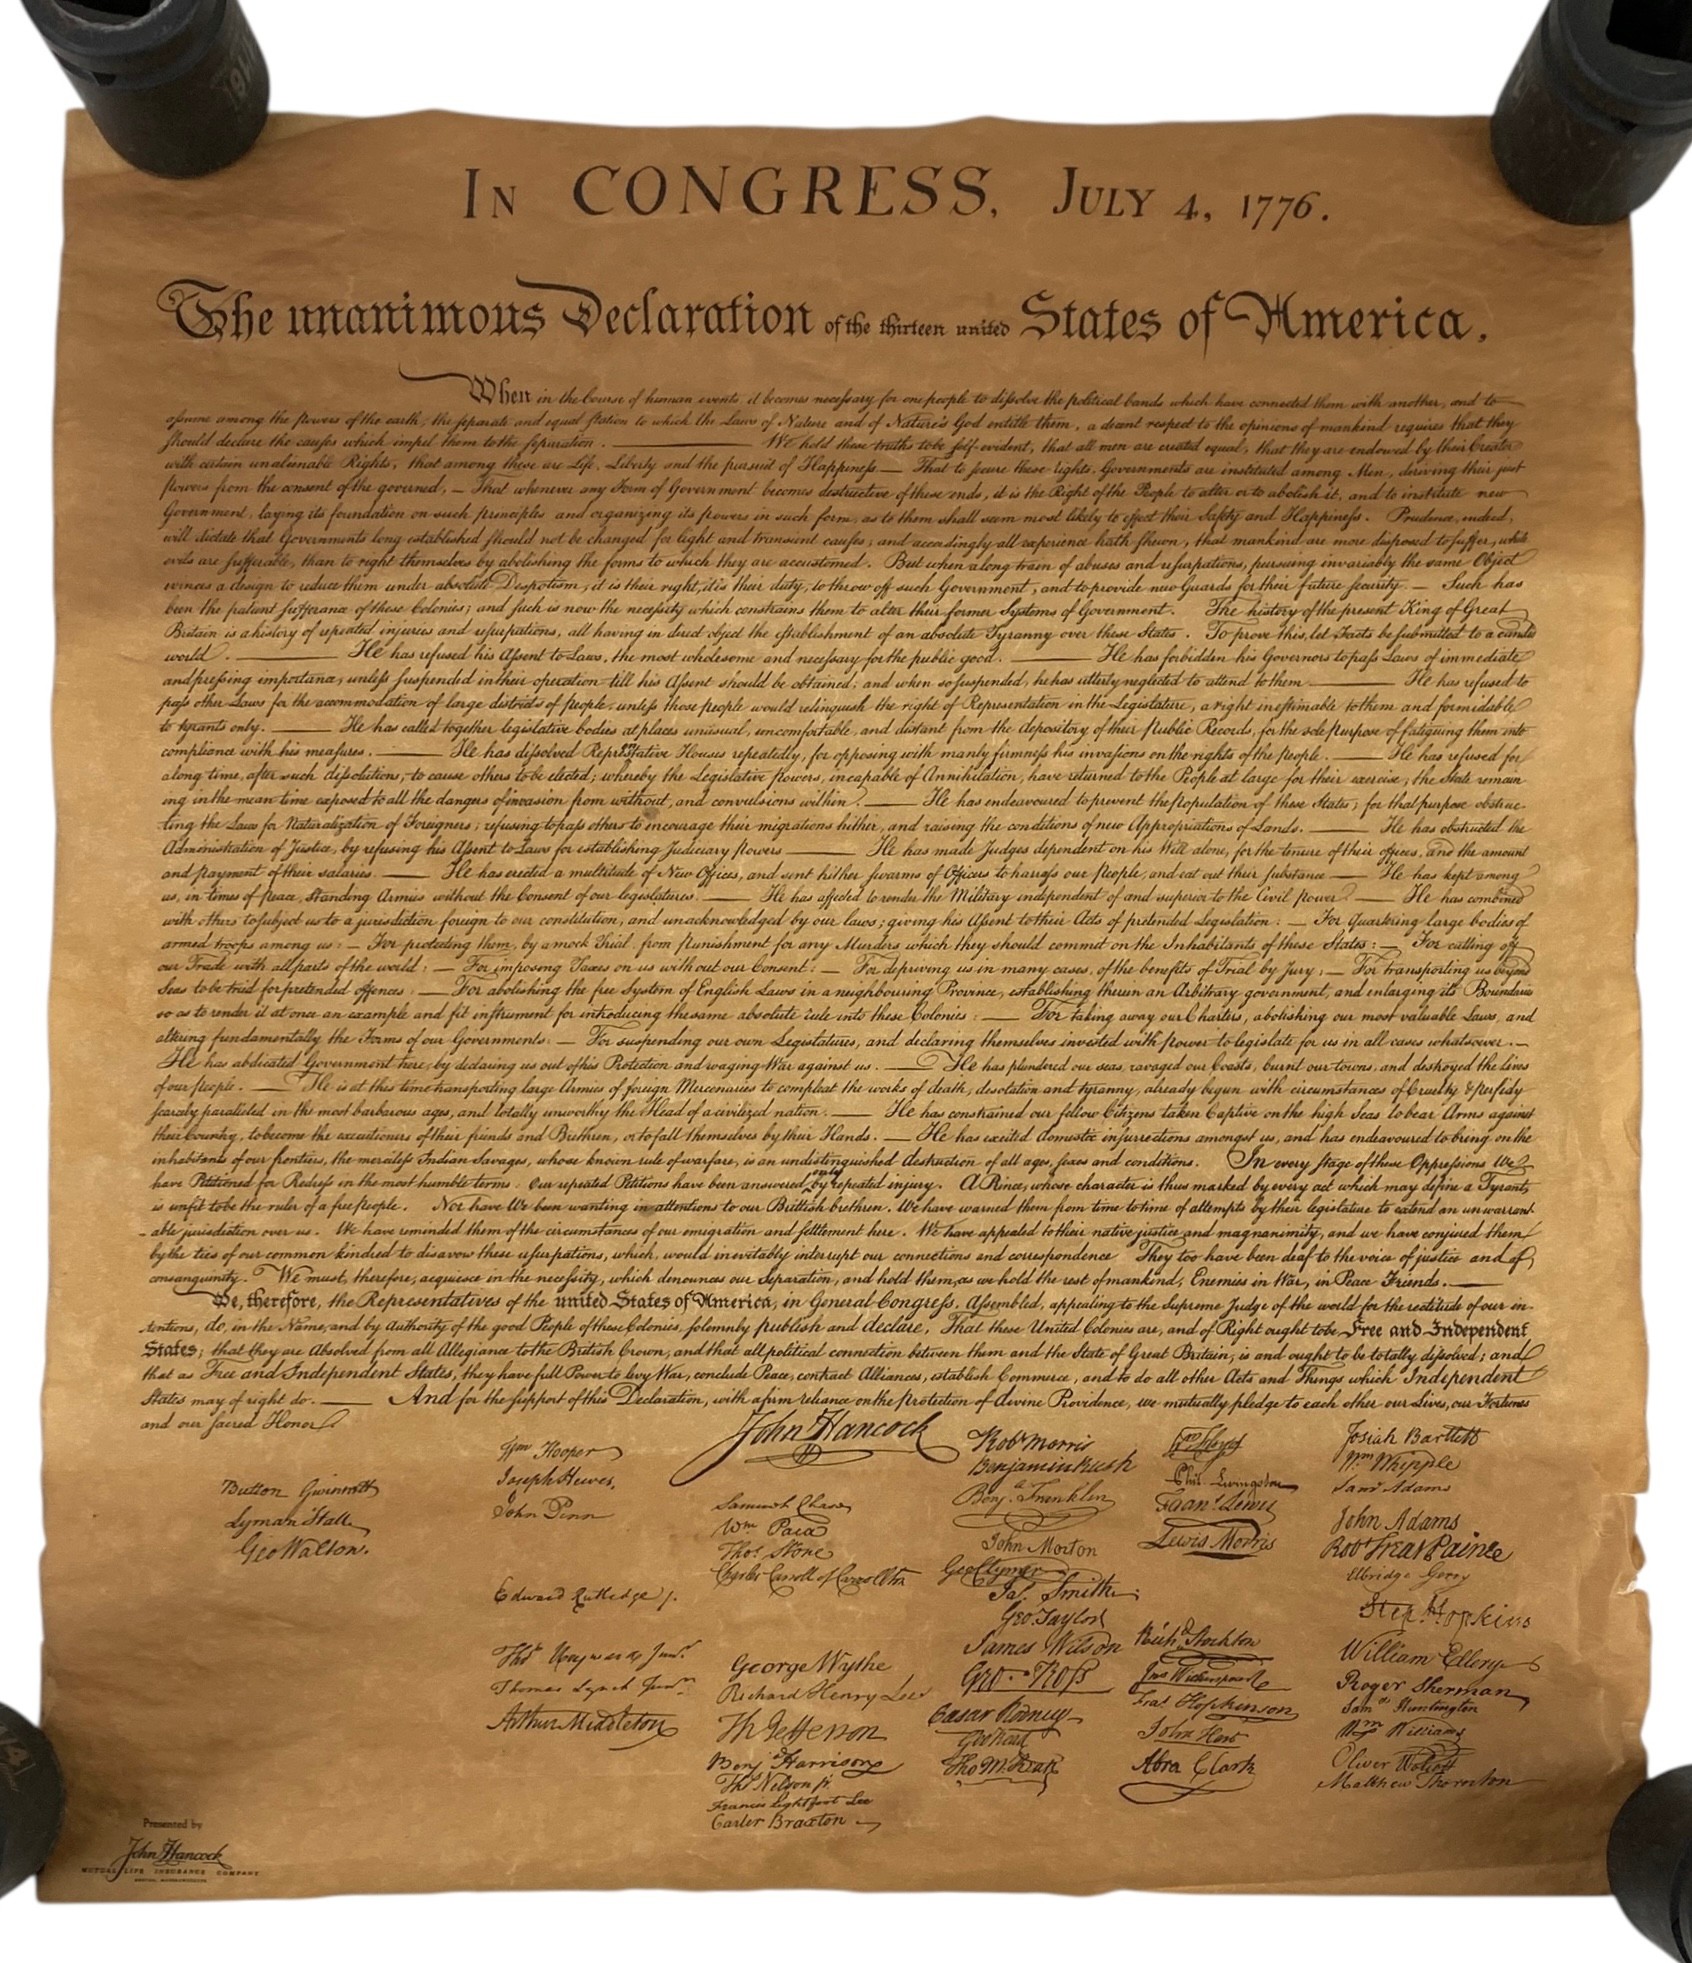 IN CONGRESS, JULY 4, 1776.
The unanimous Declaration of the thirteen united States of America,
When in the Course of human events it becomes necessary for one people to dissolve the political bands which have connected them with another, and to
assume among the Powers of the earth, the separate and equal station to which the Laws of Nature and of Nature's God entitle them, a decent respect to the opinions of mankind requires that they
should declare the causes which impel them to the separation. We hold these truths to be self-evident, that all men are created equal, that they are endowed by their Creator
with certain unalienable Rights, that among these are Life, Liberty and the pursuit of Happiness. — That to secure these rights, Governments are instituted among Men, deriving their just
powers from the consent of the governed, — That whenever any Form of Government becomes destructive of these ends, it is the Right of the People to alter or to abolish it, and to institute new
Government, laying its foundation on such principles and organizing its powers in such form, as to them shall seem most likely to effect their Safety and Happiness. Prudence, indeed,
will dictate that Governments long established should not be changed for light and transient causes; and accordingly all experience hath shewn, that mankind are more disposed to suffer, while
evils are sufferable, than to right themselves by abolishing the forms to which they are accustomed. But when a long train of abuses and usurpations, pursuing invariably the same Object
evinces a design to reduce them under absolute Despotism, it is their right, it is their duty, to throw off such Government, and to provide new Guards for their future security. — Such has
been the patient sufferance of these Colonies; and such is now the necessity which constrains them to alter their former Systems of Government. The history of the present King of Great
Britain is a history of repeated injuries and usurpations, all having in direct object the establishment of an absolute Tyranny over these States. To prove this, let Facts be submitted to a candid
world. — He has refused his Assent to Laws, the most wholesome and necessary for the public good. — He has forbidden his Governors to pass Laws of immediate
and pressing importance, unless suspended in their operation till his Assent should be obtained; and when so suspended, he has utterly neglected to attend to them — He has refused to
pass other Laws for the accommodation of large districts of people, unless those people would relinquish the right of Representation in the Legislature, a right inestimable to them and formidable
to tyrants only. — He has called together legislative bodies at places unusual, uncomfortable, and distant from the depository of their Public Records, for the sole purpose of fatiguing them into
compliance with his measures. — He has dissolved Representative Houses repeatedly, for opposing with manly firmness his invasions on the rights of the people. — He has refused for
a long time, after such dissolutions, to cause others to be elected; whereby the Legislative powers, incapable of Annihilation, have returned to the People at large for their exercise; the State remain-
ing in the mean time exposed to all the dangers of invasion from without, and convulsions within. — He has endeavoured to prevent the population of these States; for that purpose obstruc-
ting the Laws for Naturalization of Foreigners; refusing to pass others to encourage their migrations hither, and raising the conditions of new Appropriations of Lands. — He has obstructed the
Administration of Justice, by refusing his Assent to Laws for establishing Judiciary powers — He has made Judges dependent on his Will alone, for the tenure of their offices, and the amount
and payment of their salaries. — He has erected a multitude of New Offices, and sent hither swarms of Officers to harrass our People, and eat out their substance — He has kept among
us, in times of peace, Standing Armies without the Consent of our legislatures. — He has affected to render the Military independent of and superior to the Civil power. — He has combined
with others to subject us to a jurisdiction foreign to our constitution, and unacknowledged by our laws; giving his Assent to their Acts of pretended Legislation: — For quartering large bodies of
armed troops among us: — For protecting them, by a mock Trial, from punishment for any Murders which they should commit on the Inhabitants of these States: — For cutting off
our Trade with all parts of the world: — For imposing Taxes on us without our Consent: — For depriving us in many cases, of the benefits of Trial by Jury; — For transporting us beyond
Seas to be tried for pretended offences: — For abolishing the free System of English Laws in a neighbouring Province, establishing therein an Arbitrary government, and enlarging its Boundaries
so as to render it at once an example and fit instrument for introducing the same absolute rule into these Colonies: — For taking away our Charters, abolishing our most valuable Laws, and
altering fundamentally the Forms of our Governments: — For suspending our own Legislatures, and declaring themselves invested with power to legislate for us in all cases whatsoever. —
He has abdicated Government here, by declaring us out of his Protection and waging War against us. — He has plundered our seas, ravaged our Coasts, burnt our towns, and destroyed the lives
of our people. — He is at this time transporting large Armies of foreign Mercenaries to compleat the works of death, desolation and tyranny, already begun with circumstances of Cruelty & perfidy
scarcely paralleled in the most barbarous ages, and totally unworthy the Head of a civilized nation. — He has constrained our fellow Citizens taken Captive on the high Seas to bear Arms against
their Country, to become the executioners of their friends and Brethren, or to fall themselves by their Hands. — He has excited domestic insurrections amongst us, and has endeavoured to bring on the
inhabitants of our frontiers, the merciless Indian Savages, whose known rule of warfare, is an undistinguished destruction of all ages, sexes and conditions. In every stage of these Oppressions We
have Petitioned for Redress in the most humble terms: Our repeated Petitions have been answered only by repeated injury. A Prince, whose character is thus marked by every act which may define a Tyrant,
is unfit to be the ruler of a free people. Nor have We been wanting in attentions to our Brittish brethren. We have warned them from time to time of attempts by their legislature to extend an unwarrant-
able jurisdiction over us. We have reminded them of the circumstances of our emigration and settlement here. We have appealed to their native justice and magnanimity, and we have conjured them
by the ties of our common kindred to disavow these usurpations, which, would inevitably interrupt our connections and correspondence They too have been deaf to the voice of justice and of
consanguinity. We must, therefore, acquiesce in the necessity, which denounces our Separation, and hold them, as we hold the rest of mankind, Enemies in War, in Peace Friends. —
We, therefore, the Representatives of the united States of America, in General Congress, Assembled, appealing to the Supreme Judge of the world for the rectitude of our in-
tentions, do, in the Name, and by Authority of the good People of these Colonies, solemnly publish and declare, That these United Colonies are, and of Right ought to be Free and Independent
States; that they are Absolved from all Allegiance to the British Crown, and that all political connection between them and the State of Great Britain, is and ought to be totally dissolved; and
that as Free and Independent States, they have full Power to levy War, conclude Peace, contract Alliances, establish Commerce, and to do all other Acts and Things which Independent
States may of right do. — And for the support of this Declaration, with a firm reliance on the Protection of divine Providence, we mutually pledge to each other our Lives, our Fortunes
and our sacred Honor
Button Gwinnett
Lyman Hall
Geo Walton.
Wm Hooper
Joseph Hewes,
John Penn
Edward Rutledge /.
Thos Heyward Junr.
Thomas Lynch Junr
Arthur Middleton
John Hancock
Samuel Chase
Wm Paca
Thos Stone
Charles Carroll of Carrollton
George Wythe
Richard Henry Lee
Th Jefferson
Benj Harrison
Thos Nelson jr.
Francis Lightfoot Lee
Carter Braxton
Robt Morris
Benjamin Rush
Benj. Franklin
John Morton
Geo Clymer
Jas. Smith
Geo. Taylor
James Wilson
Geo. Ross
Caesar Rodney
Geo Read
Tho M:Kean
Wm Floyd
Phil. Livingston
Frans. Lewis
Lewis Morris
Richd. Stockton
Jno Witherspoon
Fras. Hopkinson
John Hart
Abra Clark
Josiah Bartlett
Wm Whipple
Saml Adams
John Adams
Robt Treat Paine
Elbridge Gerry
Step. Hopkins
William Ellery
Roger Sherman
Sam Huntington
Wm Williams
Oliver Wolcott
Matthew Thornton
Presented by
John Hancock
MUTUAL LIFE INSURANCE COMPANY
BOSTON, MASSACHUSETTS